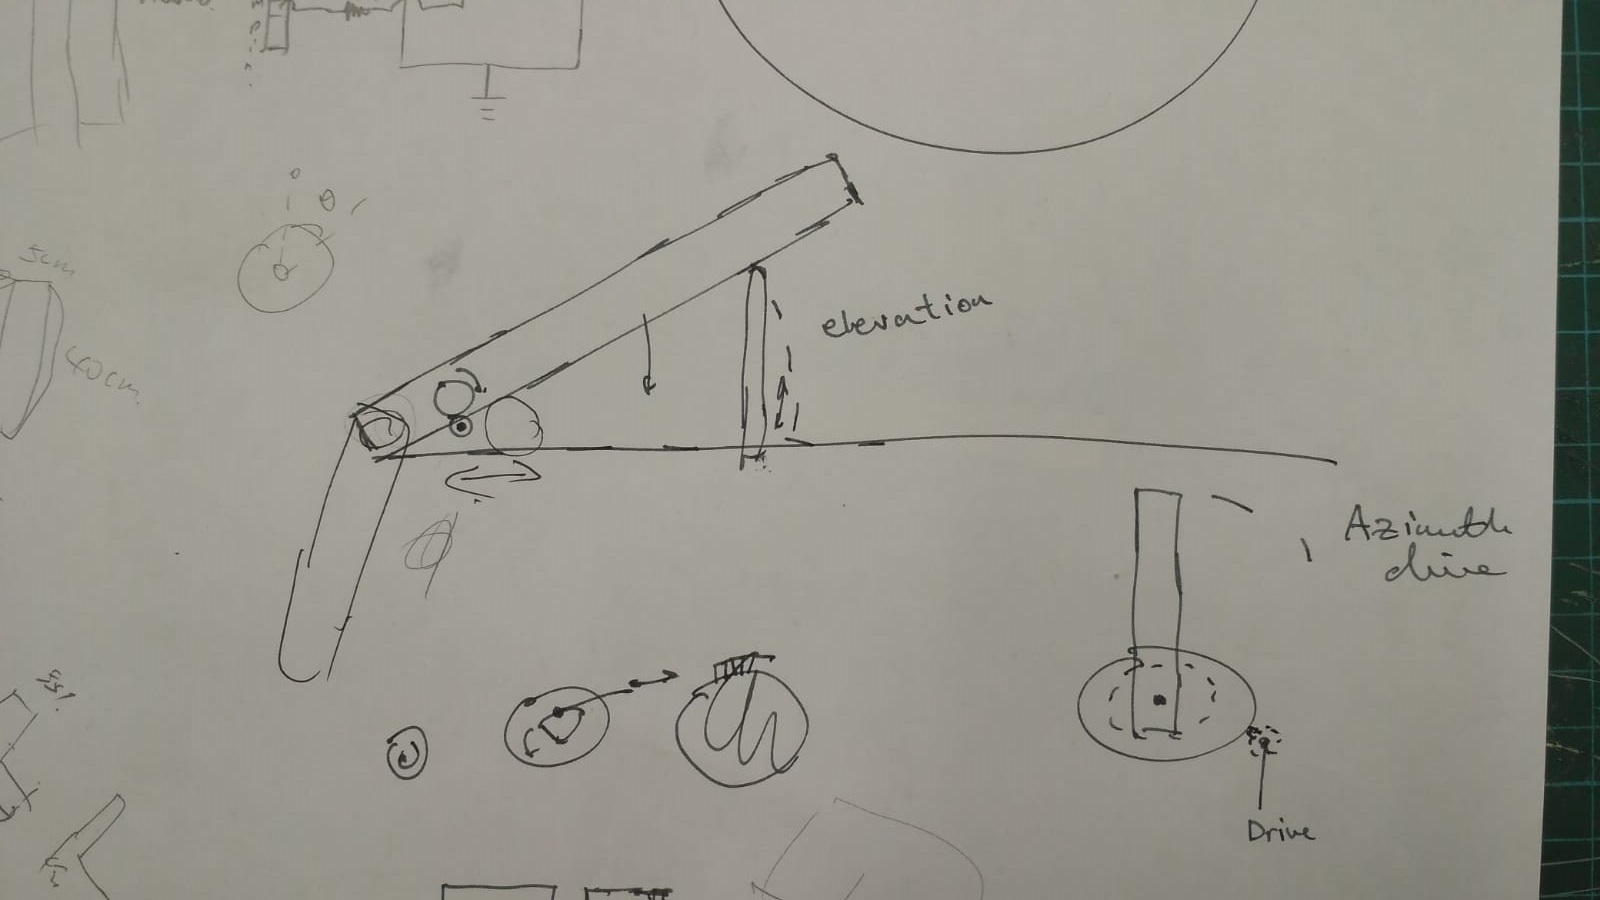 5cm
40cm
elevation
Azimuth
drive
Drive